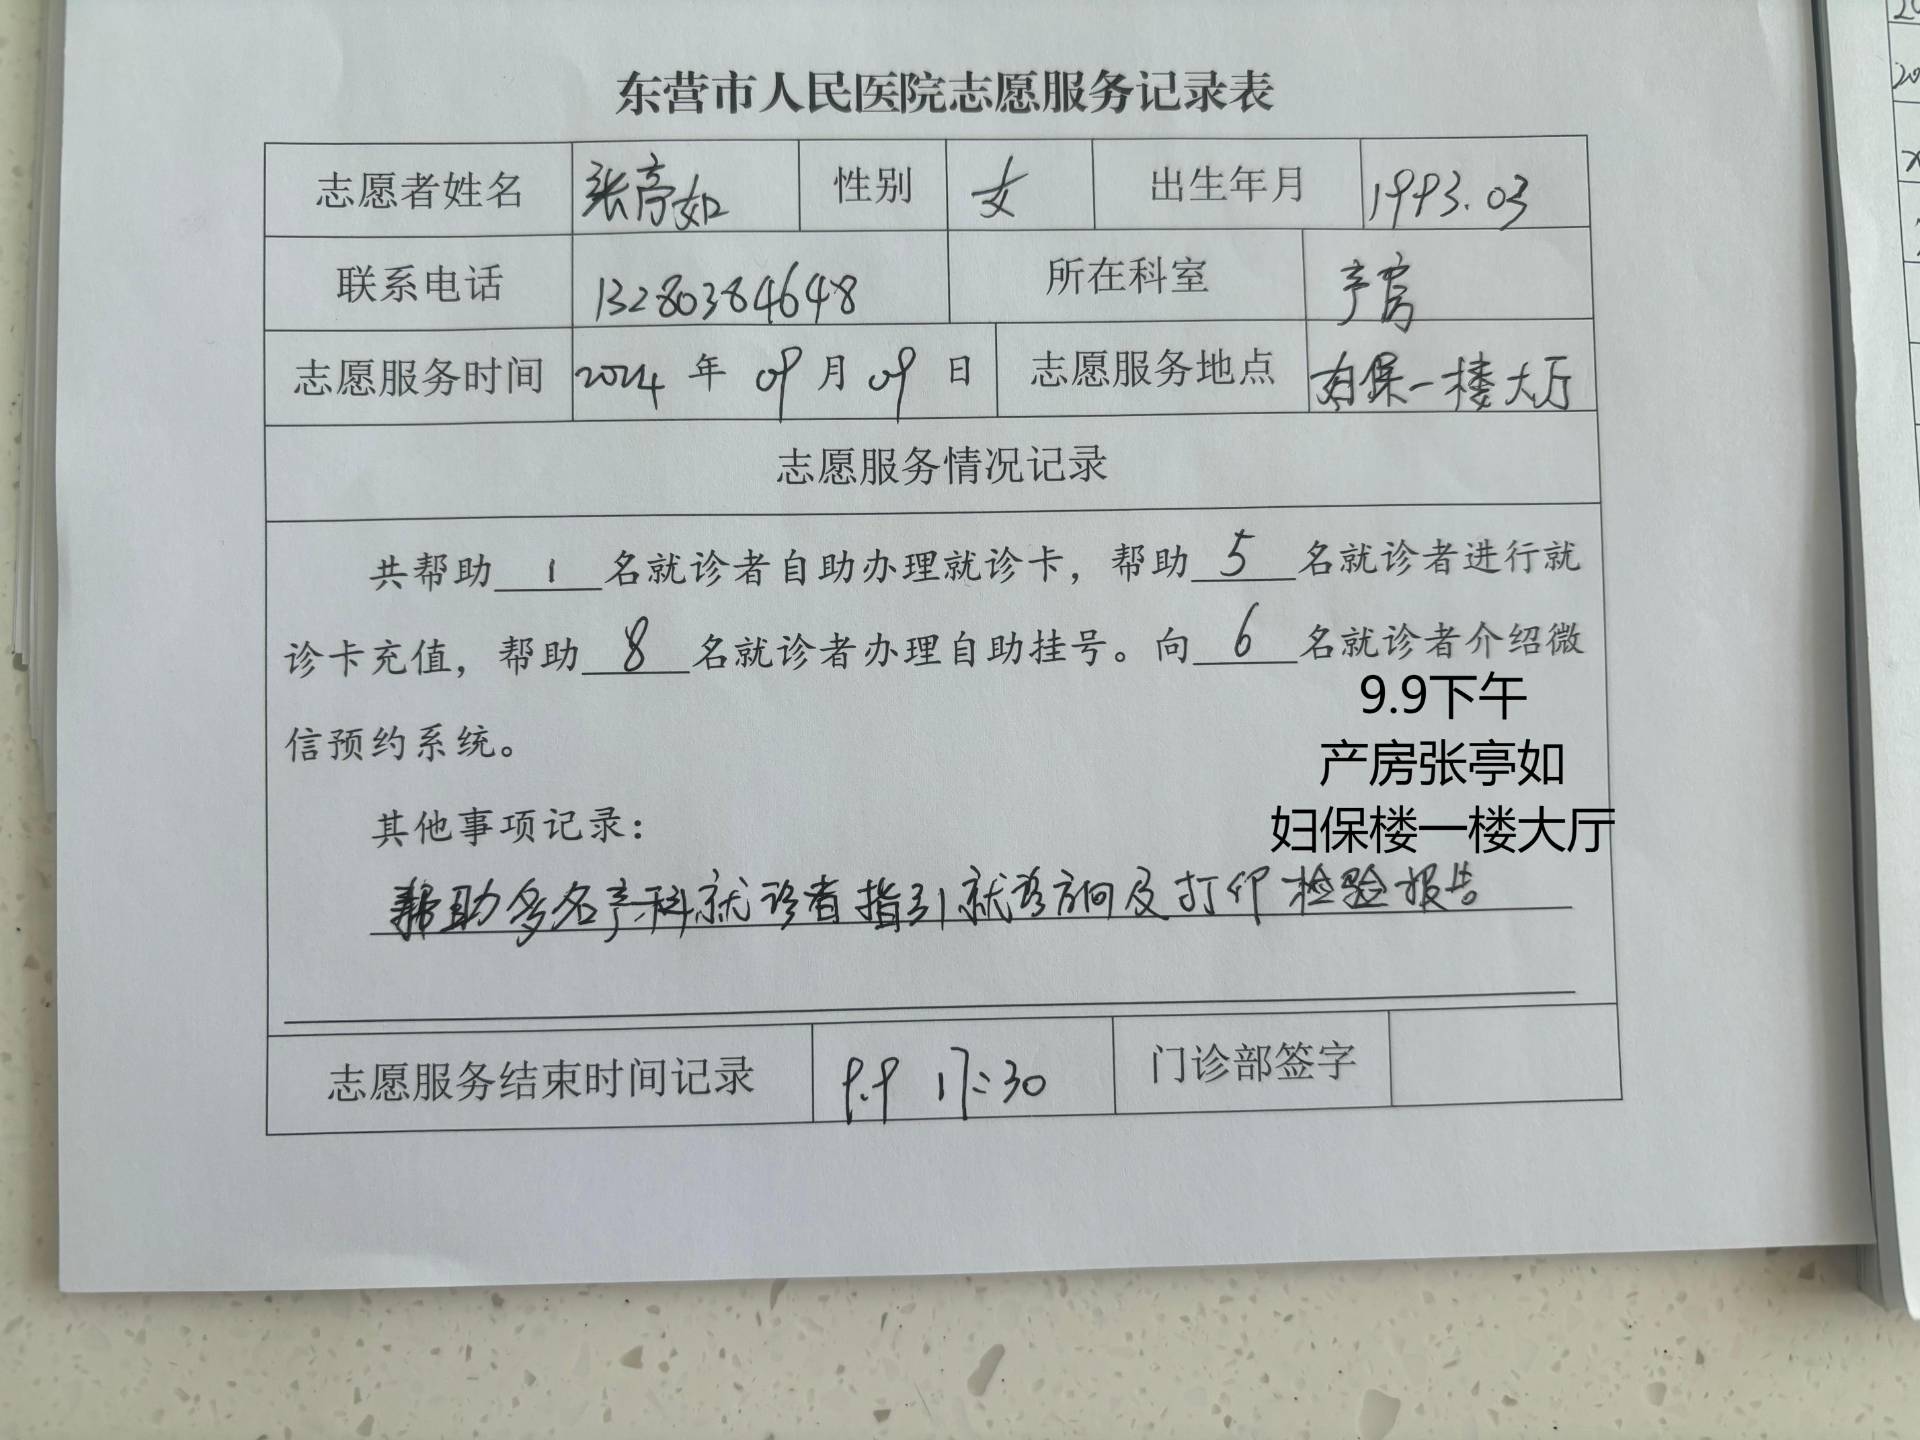 东营市人民医院志愿服务记录表
志愿者姓名 张亭如 性别 女 出生年月 1993.03
联系电话 13280384648 所在科室 产房
志愿服务时间 2024 年 09 月 09 日 志愿服务地点 妇保一楼大厅
志愿服务情况记录
共帮助 1 名就诊者自助办理就诊卡，帮助 5 名就诊者进行就
诊卡充值，帮助 8 名就诊者办理自助挂号。向 6 名就诊者介绍微
信预约系统。
9.9下午
产房张亭如
妇保楼一楼大厅
其他事项记录：
帮助多名产科就诊者指引就诊方向及打印检验报告
志愿服务结束时间记录 9.9 17:30 门诊部签字